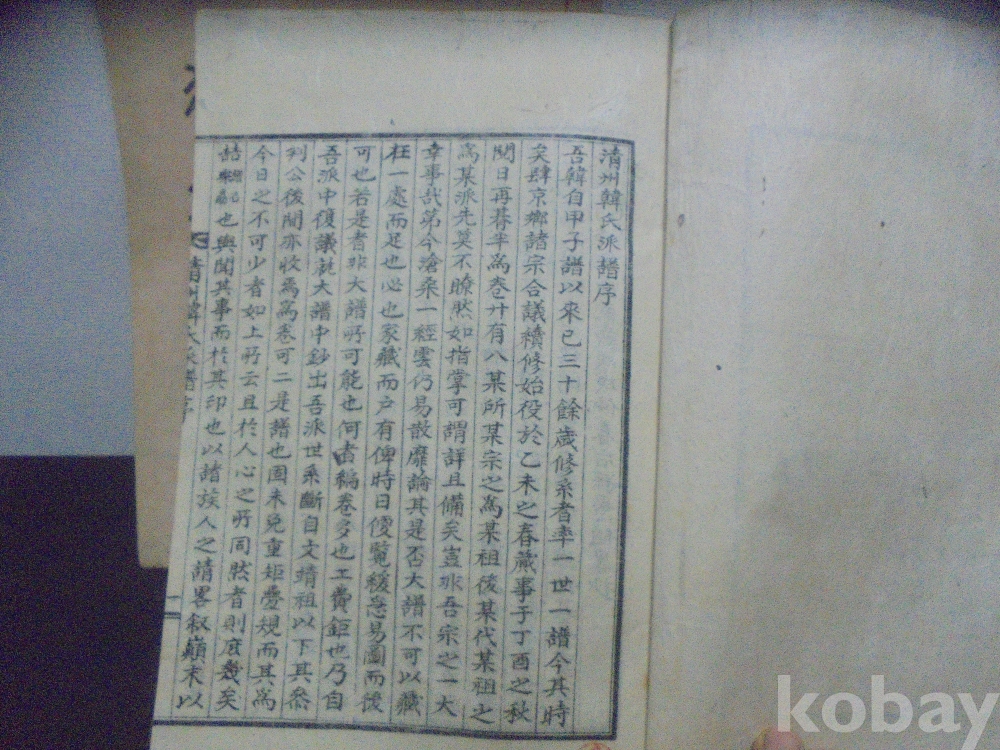 清州韓氏派譜序
吾韓自甲子譜以來已三十餘歲修系者率一世一譜今其時
矣肆京鄉諸宗合議續修始役於乙未之春蕆事于丁酉之秋
閱日再朞半爲卷廿有八某所某宗之爲某祖後某代某祖之
爲某派先莫不瞭然如指掌可謂詳且備矣豈非吾宗之一大
幸事哉第今滄桑一經雲仍易散靡論其是否大譜不可以藏
在一處而足也必也家藏而户有俾時日便覽緩急易圖而後
可也若是者非大譜所可能也何者編卷多也工費鉅也乃自
吾派中復議就大譜中鈔出吾派世系斷自文靖祖以下其叅
判公後間亦收焉爲卷可二是譜也固未免重矩疊規而其爲
今日之不可少者如上所云且於人心之所同然者則庶幾矣
也與聞其事而於其印也以諸族人之請畧叙顚末以
清州韓氏派譜序
一
kobay